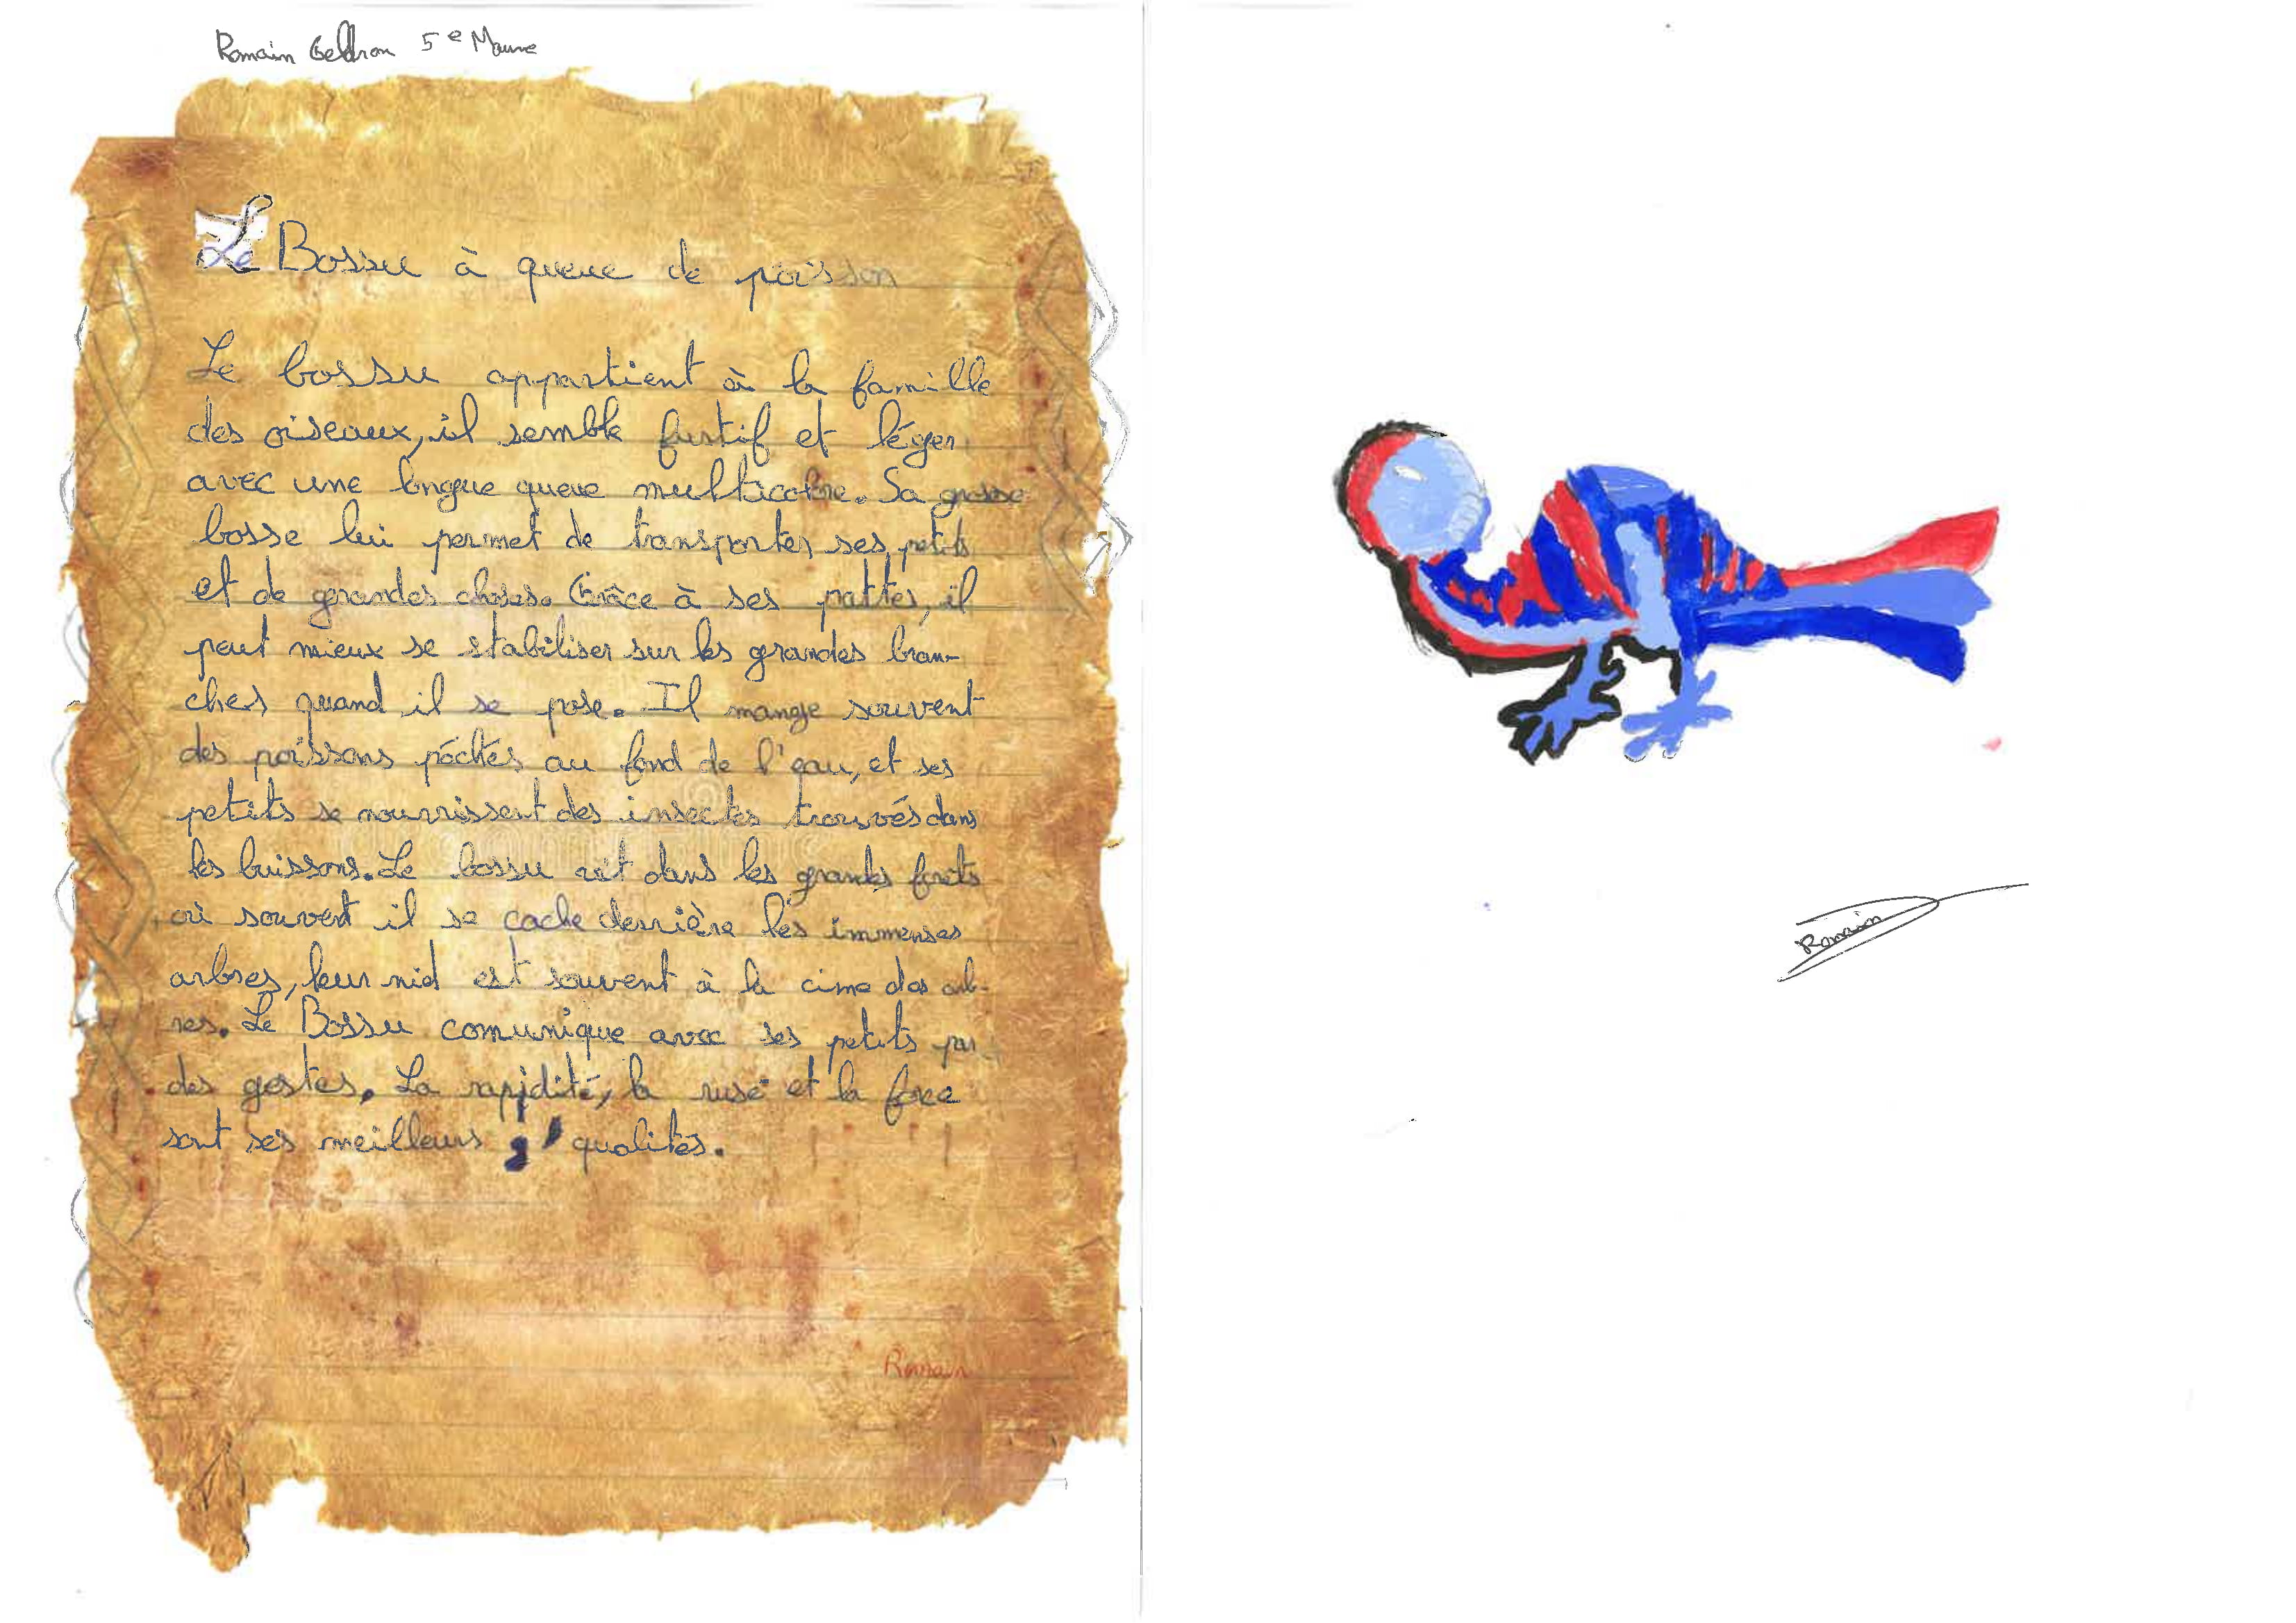 Romain 5e Mauve
Le Bossu à queue de poisson
Le bossu appartient à la famille
des oiseaux, il semble furtif et léger
avec une longue queue multicolore. Sa grosse
bosse lui permet de transporter ses petits
et de grandes choses. Grâce à ses pattes, il
peut mieux se stabiliser sur les grandes bran-
ches quand il se pose. Il mange souvent
des poissons péchés au fond de l'eau, et ses
petits se nourrissent des insectes trouvés dans
les buissons. Le bossu vit dans les grandes forêts
où souvent il se cache derrière les immenses
arbres, leur nid est souvent à la cime des arb-
res. Le Bossu comunique avec ses petits par
des gestes. La rapidité, la ruse et la force
sont ses meilleurs qualités.
Romain
Romain